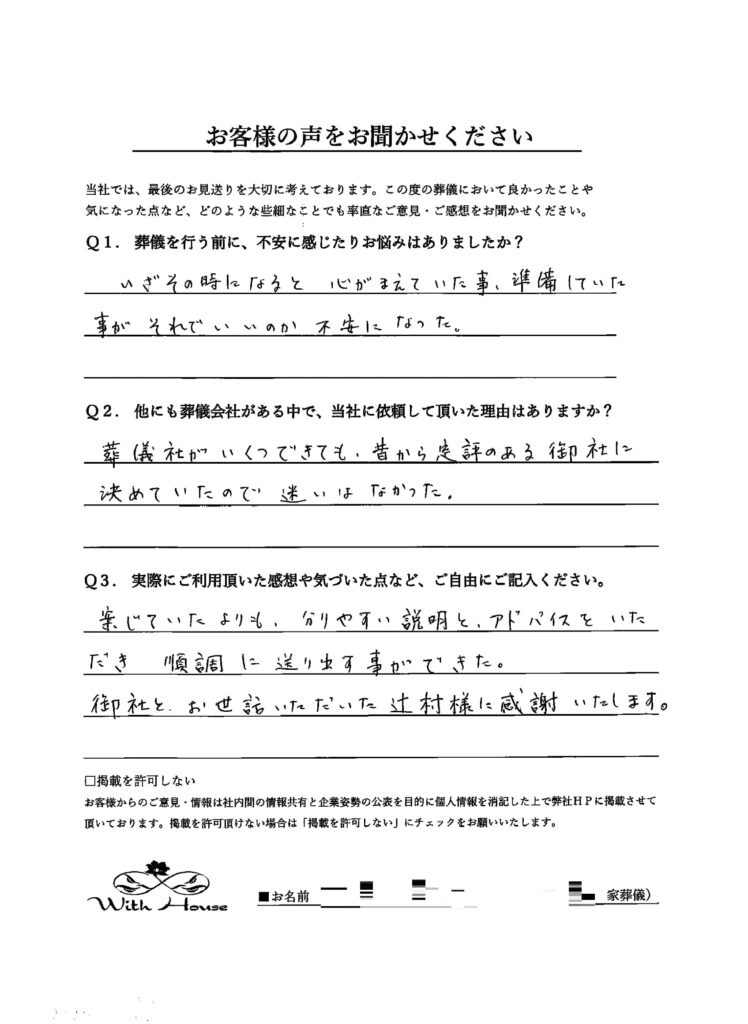 お客様の声をお聞かせください
当社では、最後のお見送りを大切に考えております。この度の葬儀において良かったことや
気になった点など、どのような些細なことでも率直なご意見・ご感想をお聞かせください。
Ｑ１． 葬儀を行う前に、不安に感じたりお悩みはありましたか？
いざその時になると 心がまえていた事、準備していた
事が それでいいのか 不安になった。
Ｑ２． 他にも葬儀会社がある中で、当社に依頼して頂いた理由はありますか？
葬儀社が いくつできても、昔から定評のある 御社に
決めていたので 迷いは なかった。
Ｑ３． 実際にご利用頂いた感想や気づいた点など、ご自由にご記入ください。
案じていたよりも、分りやすい説明と、アドバイスをいた
だき 順調に送り出す事ができた。
御社と、お世話いただいた辻村様に感謝いたします。
□掲載を許可しない
お客様からのご意見・情報は社内間の情報共有と企業姿勢の公表を目的に個人情報を消記した上で弊社ＨＰに掲載させて
頂いております。掲載を許可頂けない場合は「掲載を許可しない」にチェックをお願いいたします。
With House
■お名前 家葬儀）